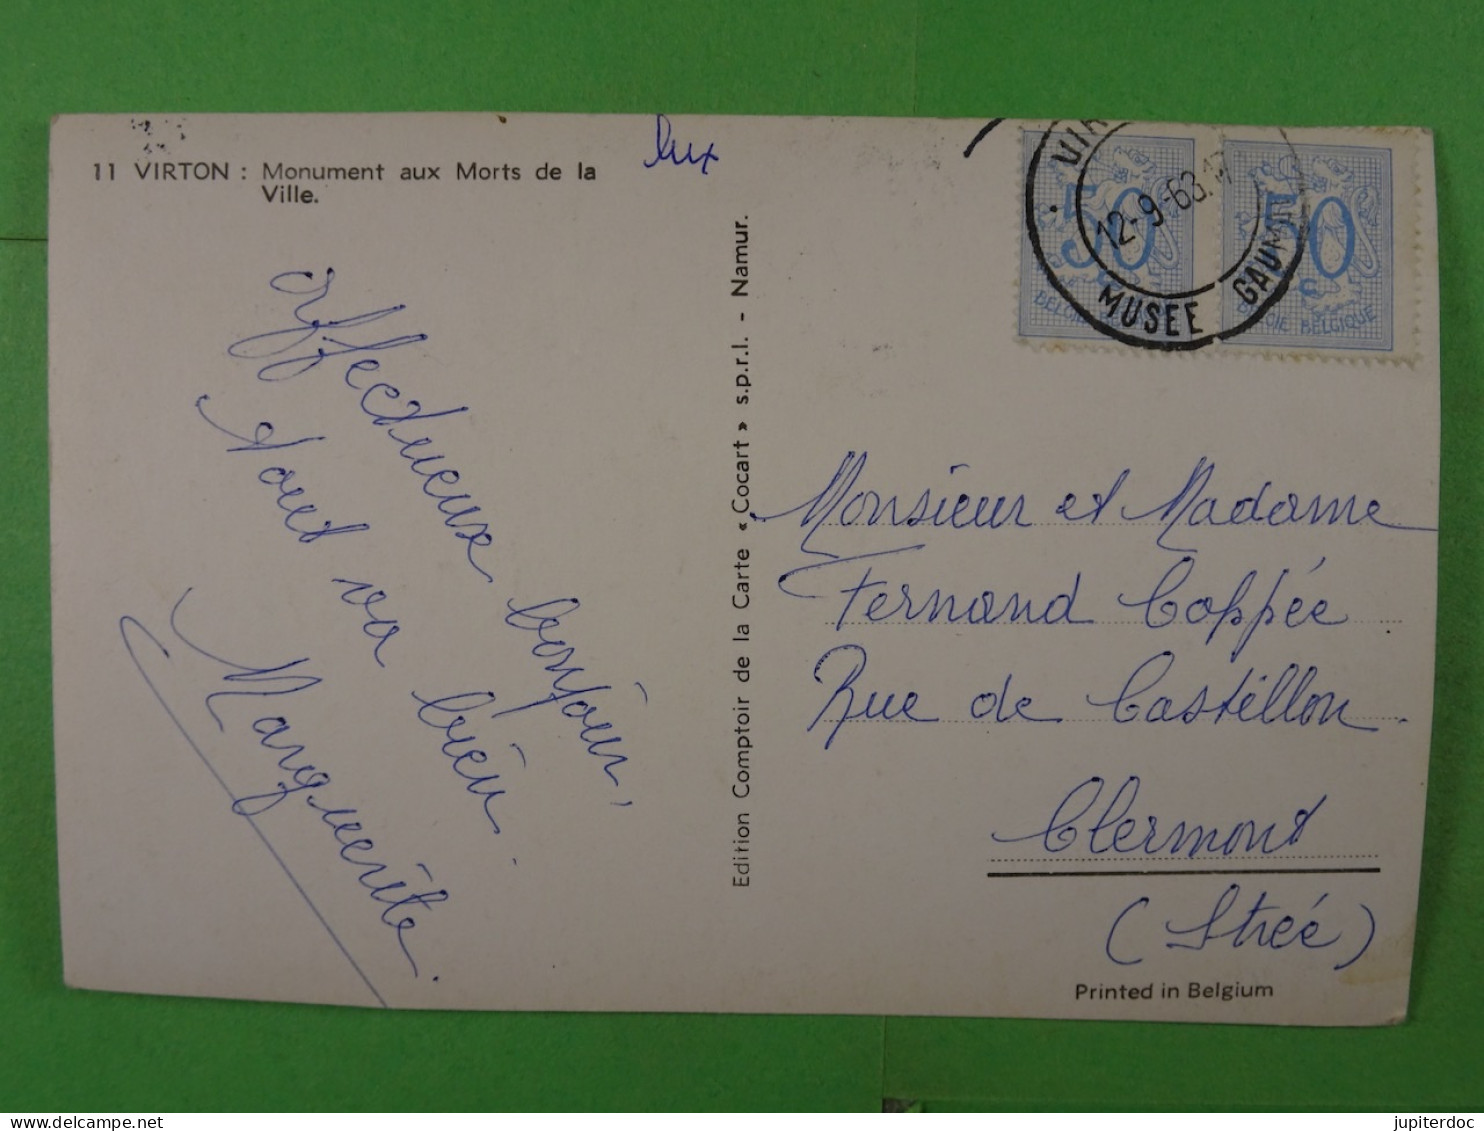 11 VIRTON : Monument aux Morts de la
Ville.
lux
Affectueux bonjour,
Tout va bien.
Marguerite.
Edition Comptoir de la Carte « Cocart » s.p.r.l. - Namur.
50
BELGIE BELGIQUE
50
c
BELGIE BELGIQUE
12-9-63.17
MUSEE GAUM
Monsieur et Madame
Fernand Coppée
Rue de Castillon.
Clermont
(Strée)
Printed in Belgium
jupiterdoc